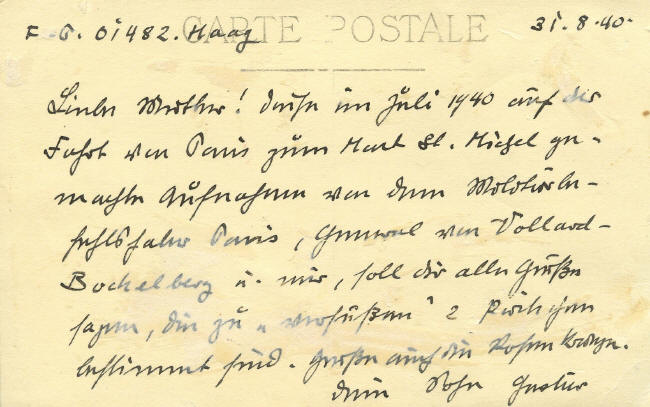 CARTE POSTALE
F. P. 01482. Haag 31.8.40.
Liebe Mutter! Diese im Juli 1940 auf der
Fahrt von Paris zum Mont St. Michel ge-
machte Aufnahme von dem Militärbe-
fehlshaber Paris, General von Vollard-
Bockelberg u. mir, soll dir alle Grüße
sagen, die zu "versüßen" 2
bestimmt sind. Grüße auch die
Dein Sohn Gustav